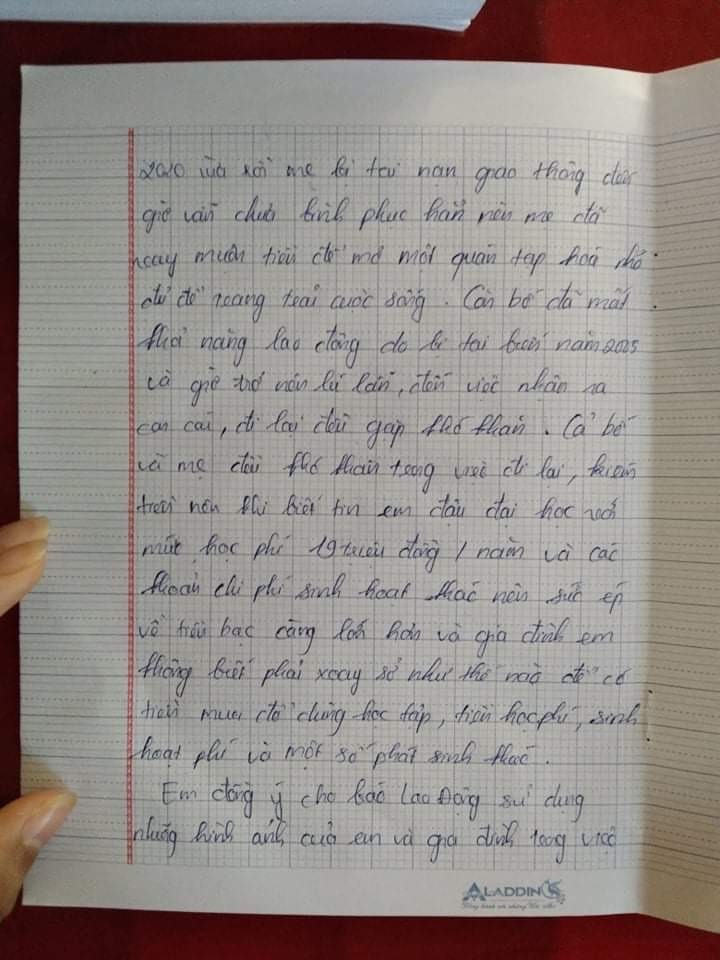 2020 vừa rồi mẹ bị tai nạn giao thông đến
giờ vẫn chưa bình phục hẳn nên mẹ đã
xoay mướn tiền để mở một quán tạp hoá nhỏ
để để trang trải cuộc sống. Còn bố đã mất
khả năng lao động do bị tai biến năm 2005
và giờ trở nên lú lẫn, đến việc nhận ra
con cái, đi lại đều gặp khó khăn. Cả bố
và mẹ đều khó khăn trong việc đi lại, kiếm
tiền nên khi biết tin em đậu đại học với
mức học phí 19 triệu đồng / năm và các
khoản chi phí sinh hoạt khác nên sức ép
về tiền bạc càng lớn hơn và gia đình em
không biết phải xoay sở như thế nào để có
tiền mua đồ dùng học tập, tiền học phí, sinh
hoạt phí và một số phát sinh khác.
Em đồng ý cho báo Lao Động sử dụng
những hình ảnh của em và gia đình trong việc
ALADDIN